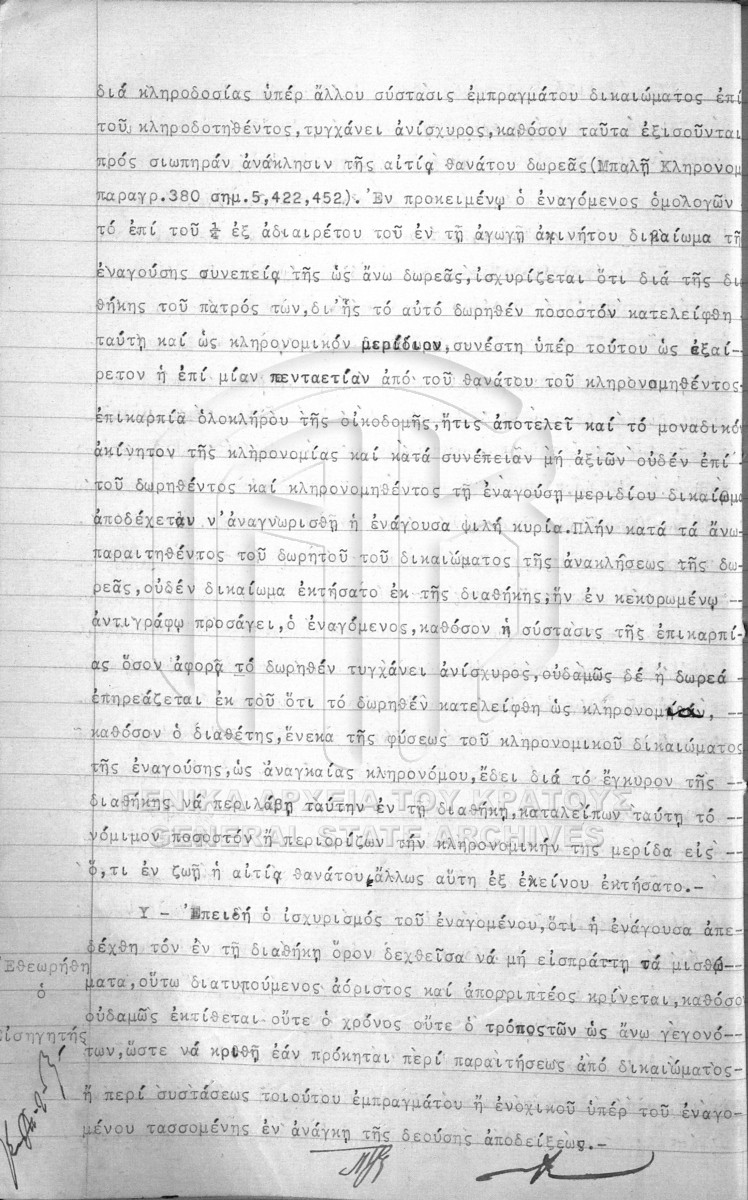 διά κληροδοσίας ὑπέρ ἄλλου σύστασις ἐμπραγμάτου δικαιώματος ἐπί
τοῦ κληροδοτηθέντος,τυγχάνει ἀνίσχυρος,καθόσον ταῦτα ἐξισοῦνται
πρός σιωπηράν ἀνάκλησιν τῆς αἰτίᾳ θανάτου δωρεᾶς(Μπαλῆ Κληρονομ
παραγρ.380 σημ.5,422,452).Ἐν προκειμένῳ ὁ ἐναγόμενος ὁμολογῶν
τό ἐπί τοῦ ½ ἐξ ἀδιαιρέτου τοῦ ἐν τῇ ἀγωγῇ ἀκινήτου δικαίωμα τῆ
ἐναγούσης συνεπείᾳ τῆς ὡς ἄνω δωρεᾶς,ἰσχυρίζεται ὅτι διά τῆς δι
θήκης τοῦ πατρός των,δι'ἧς τό αὐτό δωρηθέν ποσοστόν κατελείφθη
ταύτῃ καί ὡς κληρονομικόν μερίδιον,συνέστη ὑπέρ τούτου ὡς ἐξαί
ρετον ἡ ἐπί μίαν πενταετίαν ἀπό τοῦ θανάτου τοῦ κληρονομηθέντος
ἐπικαρπία ὁλοκλήρου τῆς οἰκοδομῆς,ἥτις ἀποτελεῖ καί τό μοναδικό
ἀκίνητον τῆς κληρονομίας καί κατά συνέπειαν μή ἀξιῶν οὐδέν ἐπί -
τοῦ δωρηθέντος καί κληρονομηθέντος τῇ ἐναγούσῃ μεριδίου δικαίωμα
ἀποδέχεται ν'ἀναγνωρισθῇ ἡ ἐνάγουσα ψιλή κυρία.Πλήν κατά τά ἄνω-
παραιτηθέντος τοῦ δωρητοῦ τοῦ δικαιώματος τῆς ἀνακλήσεως τῆς δω-
ρεᾶς,οὐδέν δικαίωμα ἐκτήσατο ἐκ τῆς διαθήκης,ἥν ἐν κεκυρωμένῳ --
ἀντιγράφῳ προσάγει,ὁ ἐναγόμενος,καθόσον ἡ σύστασις τῆς ἐπικαρπί-
ας ὅσον ἀφορᾷ τό δωρηθέν τυγχάνει ἀνίσχυρος,οὐδαμῶς δέ ἡ δωρεά -
ἐπηρεάζεται ἐκ τοῦ ὅτι τό δωρηθέν κατελείφθη ὡς κληρονομίαν, --
καθόσον ὁ διαθέτης,ἕνεκα τῆς φύσεως τοῦ κληρονομικοῦ δικαιώματος
τῆς ἐναγούσης,ὡς ἀναγκαίας κληρονόμου,ἔδει διά τό ἔγκυρον τῆς --
διαθήκης νά περιλάβῃ ταύτην ἐν τῇ διαθήκῃ,καταλείπων ταύτῃ τό --
νόμιμον ποσοστόν ἤ περιορίζων τήν κληρονομικήν της μερίδα εἰς --
ὅ,τι ἐν ζωῇ ἡ αἰτίᾳ θανάτου ἄλλως αὕτη ἐξ ἐκείνου ἐκτήσατο.-
Υ - Ἐπειδή ὁ ἰσχυρισμός τοῦ ἐναγομένου,ὅτι ἡ ἐνάγουσα ἀπε-
δέχθη τόν ἐν τῇ διαθήκῃ ὅρον δεχθεῖσα νά μή εἰσπράττῃ τά μισθώ-
ματα,οὕτω διατυπούμενος ἀόριστος καί ἀπορριπτέος κρίνεται,καθόσο
οὐδαμῶς ἐκτίθεται οὔτε ὁ χρόνος οὔτε ὁ τρόποςτῶν ὡς ἄνω γεγονό--
των,ὥστε νά κριθῇ ἐάν πρόκηται περί παραιτήσεως ἀπό δικαιώματος-
ἤ περί συστάσεως τοιούτου ἐμπραγμάτου ἤ ἐνοχικοῦ ὑπέρ τοῦ ἐναγο-
μένου τασσομένης ἐν ἀνάγκῃ τῆς δεούσης ἀποδείξεως.-
Ἐθεωρήθη
ὁ
Εἰσηγητής
ΓΕΝΙΚΑ ΑΡΧΕΙΑ ΤΟΥ ΚΡΑΤΟΥΣ
GENERAL STATE ARCHIVES